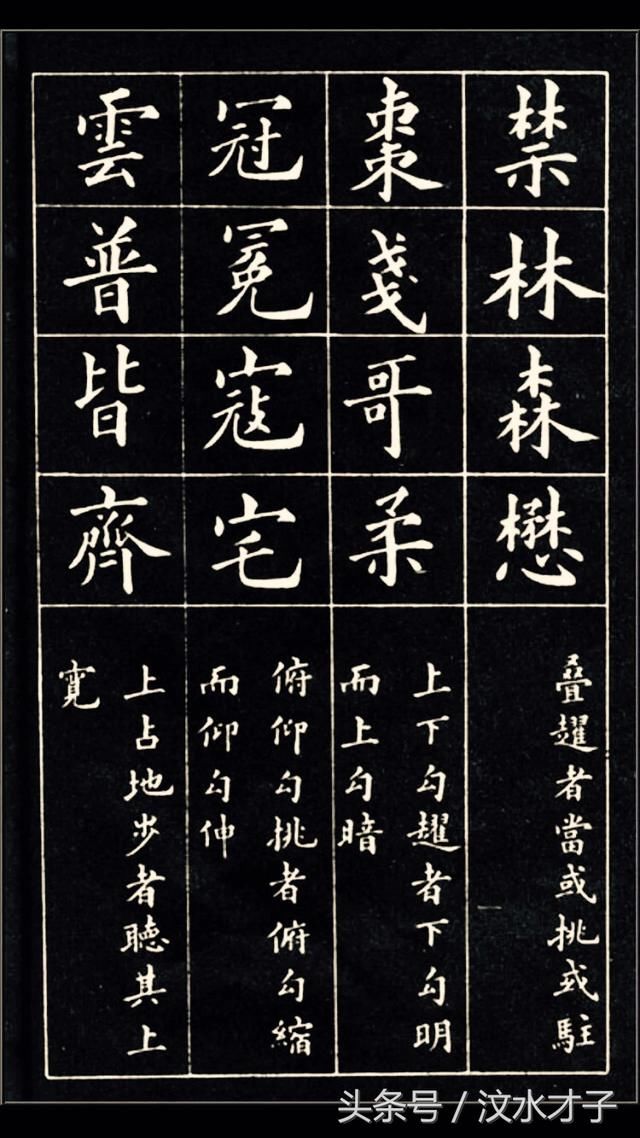 禁林森懋
叠趯者當或挑或駐
棗戔哥柔
上下勾趯者下勾明
而上勾暗
冠冕寇宅
俯仰勾挑者俯勾縮
而仰勾伸
雲普皆齊
上占地步者聽其上
寬
头条号 / 汶水才子